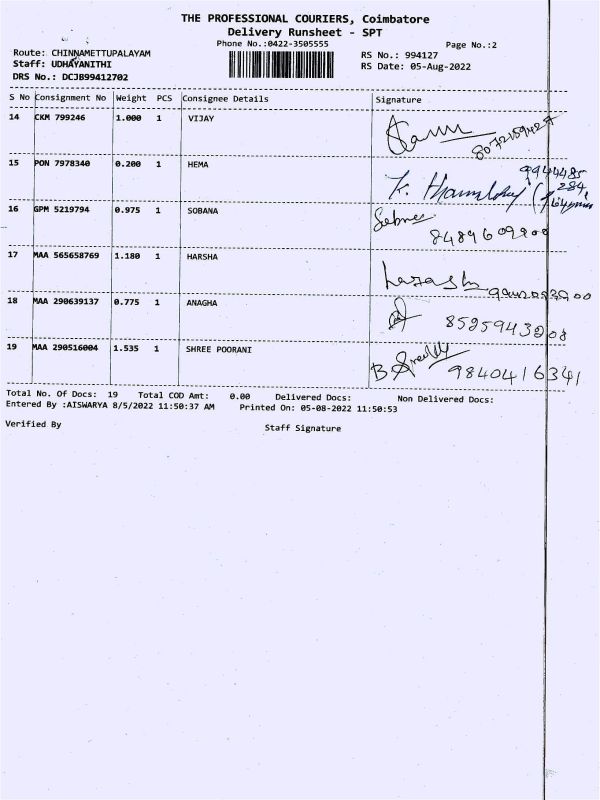 THE PROFESSIONAL COURIERS, Coimbatore
Delivery Runsheet - SPT
Phone No.:0422-3505555
Page No.:2
Route: CHINNAMETTUPALAYAM
RS No.: 994127
Staff: UDHAYANITHI
RS Date: 05-Aug-2022
DRS No.: DCJB99412702
S No Consignment No Weight PCS Consignee Details Signature
14 CKM 799246 1.000 1 VIJAY
8072159427
15 PON 7978340 0.200 1 HEMA
9944485
284
16 GPM 5219794 0.975 1 SOBANA
8489609200
17 MAA 565658769 1.180 1 HARSHA
18 MAA 290639137 0.775 1 ANAGHA
8525943208
19 MAA 290516004 1.535 1 SHREE POORANI
9840416341
Total No. Of Docs: 19 Total COD Amt: 0.00 Delivered Docs: Non Delivered Docs:
Entered By :AISWARYA 8/5/2022 11:50:37 AM Printed On: 05-08-2022 11:50:53
Verified By
Staff Signature